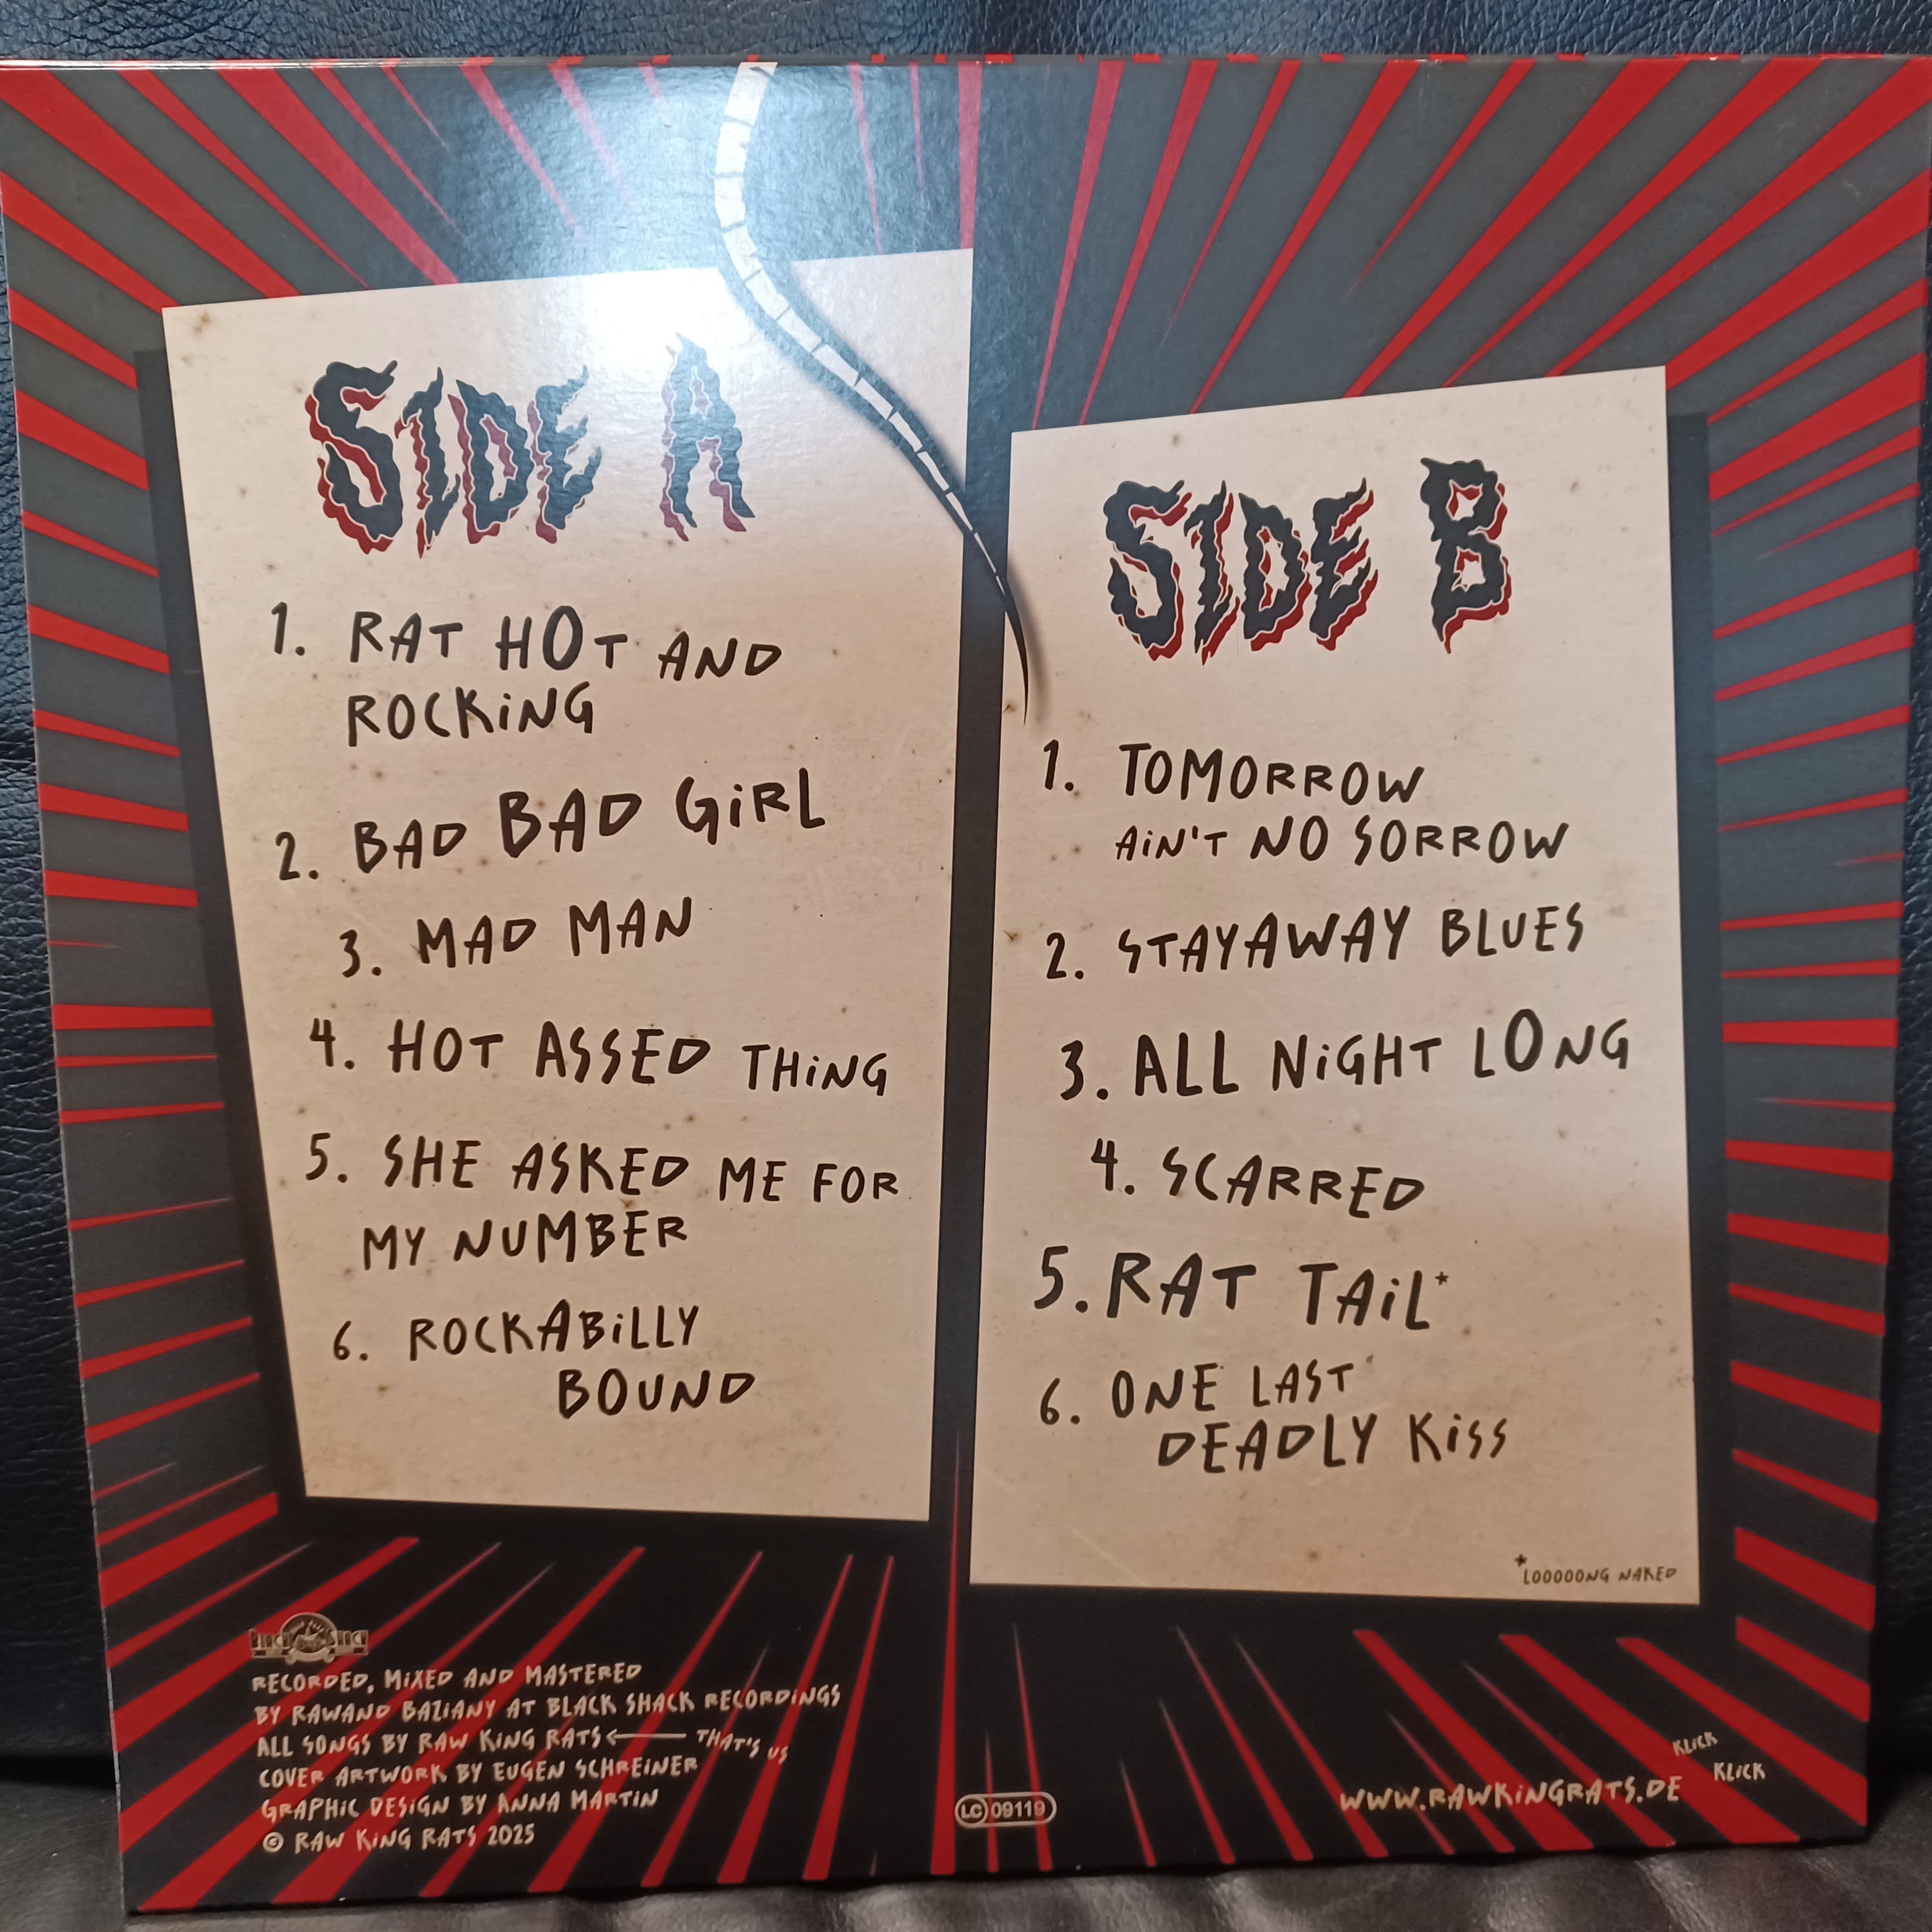 SIDE A
1. RAT HOT AND
ROCKiNG
2. BAD BAD GiRL
3. MAD MAN
4. HOT ASSED THiNG
5. SHE ASKED ME FOR
MY NUMBER
6. ROCKABiLLY
BOUND
SIDE B
1. TOMORROW
AiN'T NO SORROW
2. STAYAWAY BLUES
3. ALL NiGHT LONG
4. SCARRED
5. RAT TAiL*
6. ONE LAST
DEADLY KiSS
*LOOOOONG NAKED
BLACK SHACK
RECORDED, MiXED AND MASTERED
BY RAWAND BAZIANY AT BLACK SHACK RECORDiNGS
ALL SONGS BY RAW KiNG RATS ← THAT'S US
COVER ARTWORK BY EUGEN SCHREiNER
GRAPHiC DESiGN BY ANNA MARTiN
© RAW KiNG RATS 2025
LC 09119
KLiCK
KLiCK
WWW.RAWKiNGRATS.DE